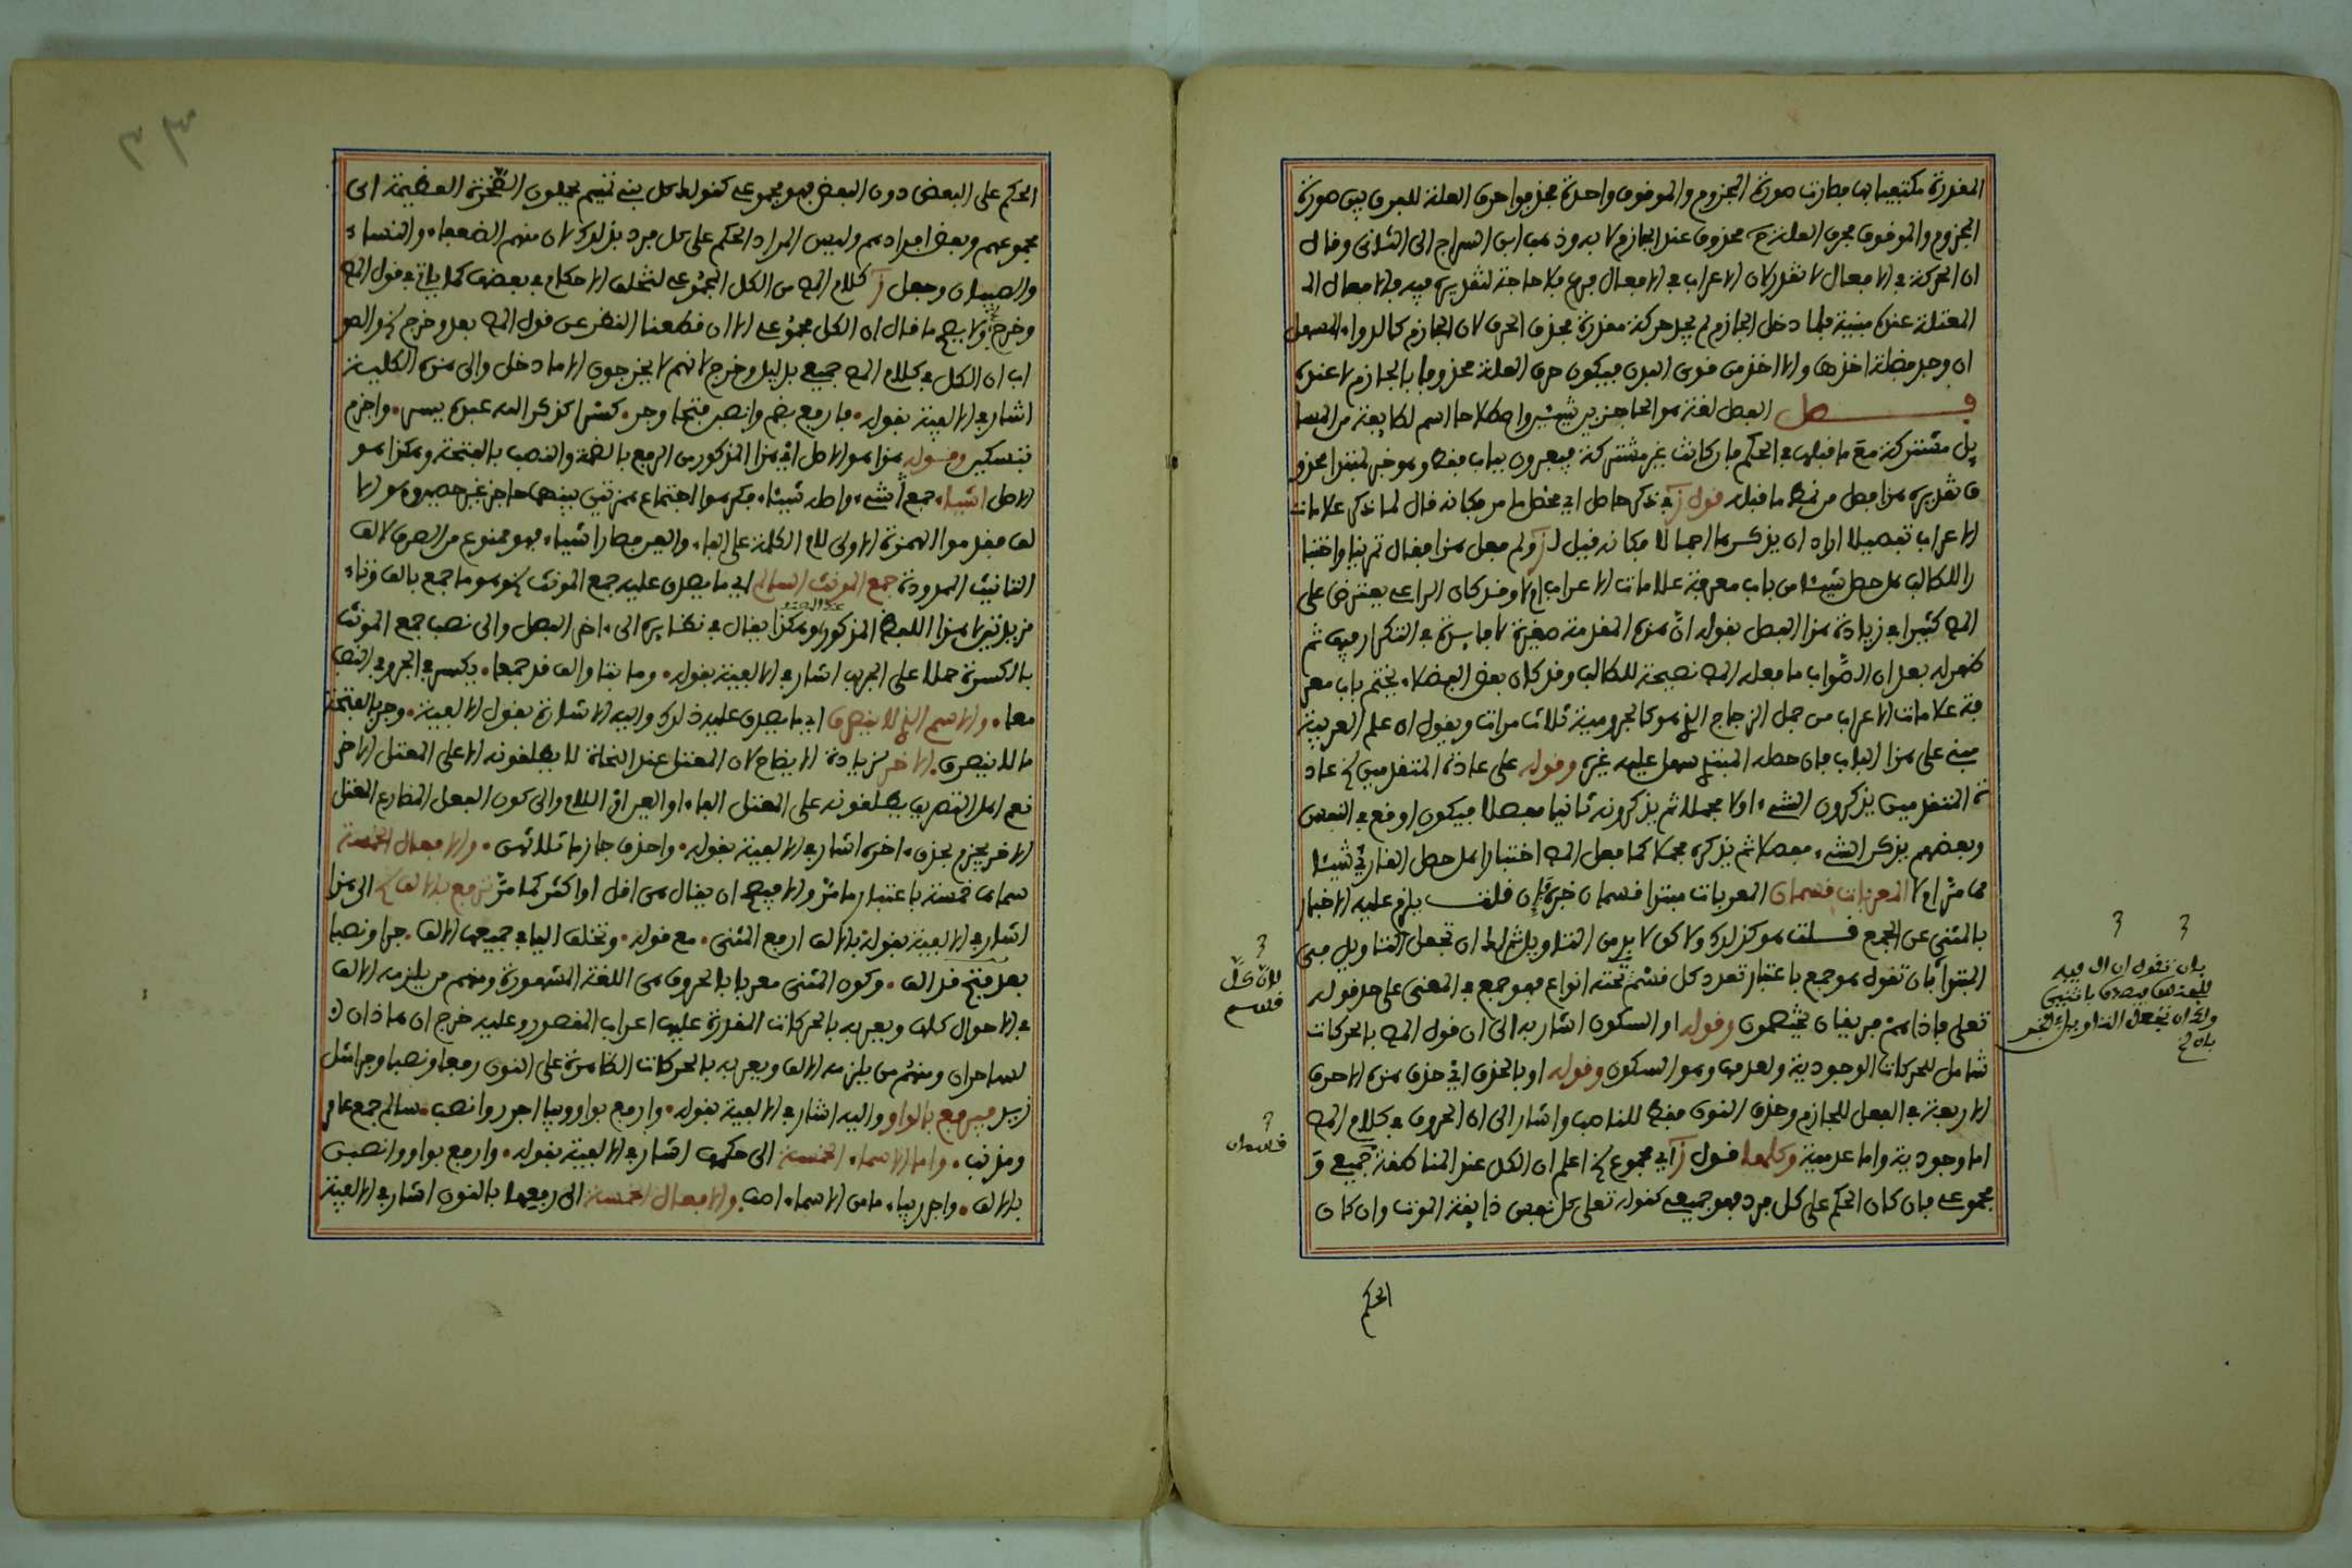 المقدرة مكتفيا بها فصارت صورة المجزوم والموقوف واحدة فحذفوا حرف العلة للفرق بين صورة
المجزوم والموقوف فحرف العلة محذوف عند الجازم لا به وذهب ابن السراج الى الثاني وقال
ان الحركة في الافعال لا تقدر لان الاعراب في الافعال فرع فلا حاجة لتقديره فيه فالافعال الـ
المعتلة عنده مبنية فلما دخل الجازم لم يجد حركة مقدرة فحذف الحرف لان الجازم كالدواء المسهل
ان وجد فضلة اخذها والا اخذ من قوى البدن فيكون حرف العلة محذوفا بالجازم لا عنده
فصل الفصل لغة هو الحاجز بين شيئين واصطلاحا اسم لطايفة من المسا
يل مشتركة مع ما قبلها في الحكم فان كانت غير مشتركة فيعبرون بباب فقط وهو خبر لمبتدا محذو
ف تقديره هذا فصل من نمط ما قبله قول ز ذكر حاصل اي محصل ما مر فكانه قال لما ذكر علامات
الاعراب تفصيلا اراد ان يذكرها اجمالا فكانه قيل لـ ز ولم فعل هذا فقال تمرينا واختبا
را للطالب هل حصل شيئا من باب معرفة علامات الاعراب اولا وقد كان الراعي يعترض على
المص كثيرا في زيادة هذا الفصل بقوله ان هذه المقدمة صغيرة لا فايدة في التكرار فيها ثم
ظهر له بعد ان الصواب ما فعله المص نصيحة للطالب وقد كان بعض الفضلاء يختم باب معر
فة علامات الاعراب من جمل الزجاج الذي هو كالجرومية ثلاث مرات ويقول ان علم العربية
مبني على هذا الباب فان حصله المبتدي سهل عليه غيره وقوله على عادة المتقدمين لخ عاد
ة المتقدمين يذكرون الشيء اولا مجملا ثم يذكرونه ثانيا مفصلا فيكون اوقع في النفس
وبعضهم يذكر الشيء مفصلا ثم يذكره مجملا كما فعل المص اختبارا هل حصل القارئ شيئا
مما مر اولا المعربات قسمان المعربات مبتدا قسمان خبره فان قلت يلزم عليه الاخبار
بالمثنى عن الجمع قلت هو كذلك ولاكن لا بد من التاويل شرط ان تجعل التاويل في
المبتدا بان تقول هو جمع باعتبار تعدد كل قسم تحته انواع فهو جمع في المعنى على حد قوله
تعلى فاذا هم فريقان يختصمون وقوله او السكون اشار به الى ان قول المص بالحركات
شامل للحركات الوجودية والعدمية وهو السكون وقوله او بالحذف اي حذف هذه الاحرف
الاربعة في الفعل للجازم وحذف النون فقط للناصب واشار الى ان الحروف في كلام المص
اما وجودية واما عدمية وكلها قول ز اي مجموع لخ اعلم ان الكل عند المناطقة جميعي و
مجموعي فان كان الحكم على كل فرد فهو جميعي كقوله تعلى كل نفس ذايقة الموت وان كان
الحكم
لان كل
قسم
قسمان
بان تقول ان ال فيه
للجنس فيصدق باثنين
ولك ان تجعل التاويل في الخبر
بان
الحكم على البعض دون البعض فهو مجموعي كقولك كل بني تميم يحملون الصخرة العظيمة اي
مجموعهم وبعض افرادهم وليس المراد الحكم على كل فرد بذلك لان منهم الضعفاء والنساء
والصبيان وجعل ز كلام المص من الكل المجموعي لتخلف الاحكام في بعضها كما ياتي في قول المص
وخرج ولا يصح ما قال ان الكل مجموعي الا ان قطعنا النظر عن قول المص بعد وخرج لخ والصو
اب ان الكل في كلام المص جميعي بدليل وخرج لانهم لا يخرجون الا ما دخل والى هذه الكلية
اشار في الالفية بقوله فارفع بضم وانصبن فتحا وجر كسرا كذكر الله عبده يسر واجزم
بتسكين وقوله هذا هو الاصل اي هذا المذكور من الرفع بالضمة والنصب بالفتحة وهكذا هو
الاصل اشياء جمع شيء واصله شيئاء فكرهوا اجتماع همزتين بينهما حاجز غير حصين وهو الا
لف فقدموا الهمزة الاولى لام الكلمة على الفاء والعين فصار اشياء فهو ممنوع من الصرف لالف
التانيث الممدودة جمع المونث السالم اي ما يصدق عليه جمع المونث لخ وهو ما جمع بالف وتاء
مزيدتين لا هذا اللفظ المذكور وهكذا يقال في نظايره الى اخر الفصل والى نصب جمع المونث
بالكسرة حملا على الجر اشار في الالفية بقوله وما بتا والف قد جمعا يكسر في الجر وفي النصب
معا والاسم الذي لا ينصرف اي ما يصدق عليه ذلك واليه الاشارة بقول الالفية وجر بالفتحة
ما لا ينصرف الاخر زيادة الايضاح لان المعتل عند النحاة لا يطلقونه الا على المعتل الاخر
نعم اهل التصريف يطلقونه على المعتل الفاء او العين او اللام والى كون الفعل المضارع المعتل
الاخر يجزم بحذف اخره اشار في الالفية بقوله واحذف جازما ثلاثهن والافعال الخمسة
سماها خمسة باعتبار ما مر والاصح ان يقال هي اقل او اكثر كما مر ترفع بالالف لخ الى هذا
اشار في الالفية بقوله بالالف ارفع المثنى مع قوله وتخلف اليا في جميعها الالف جرا ونصبا
بعد فتح قد الف وكون المثنى معربا بالحروف هي اللغة المشهورة ومنهم من يلزمه الالف
في الاحوال كلها ويعربه بالحركات المقدرة عليها اعراب المقصور وعليه خرج ان هاذان
لساحران ومنهم من يلزمه الالف ويعربه بالحركات الظاهرة على النون رفعا ونصبا وجرا
فيرفع بالواو واليه اشار في الالفية بقوله وارفع بواو وبيا اجرر وانصب سالم جمع عامر
ومذنب واما الاسماء الخمسة الى حكمها اشار في الالفية بقوله وارفع بواو وانصبن
بالالف واجرر بياء ما من الاسماء اصف والافعال الخمسة الى رفعها بالنون اشار في الالفية